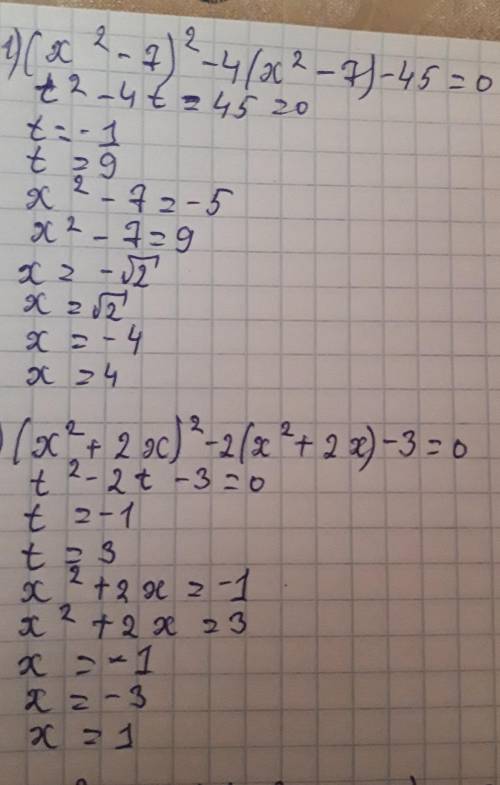 1) (x² - 7)² - 4(x² - 7) - 45 = 0
t² - 4t = 45 = 0
t = -1
t = 9
x² - 7 = -5
x² - 7 = 9
x = -√2
x = √2
x = -4
x = 4
) (x² + 2x)² - 2(x² + 2x) - 3 = 0
t² - 2t - 3 = 0
t = -1
t = 3
x² + 2x = -1
x² + 2x = 3
x = -1
x = -3
x = 1